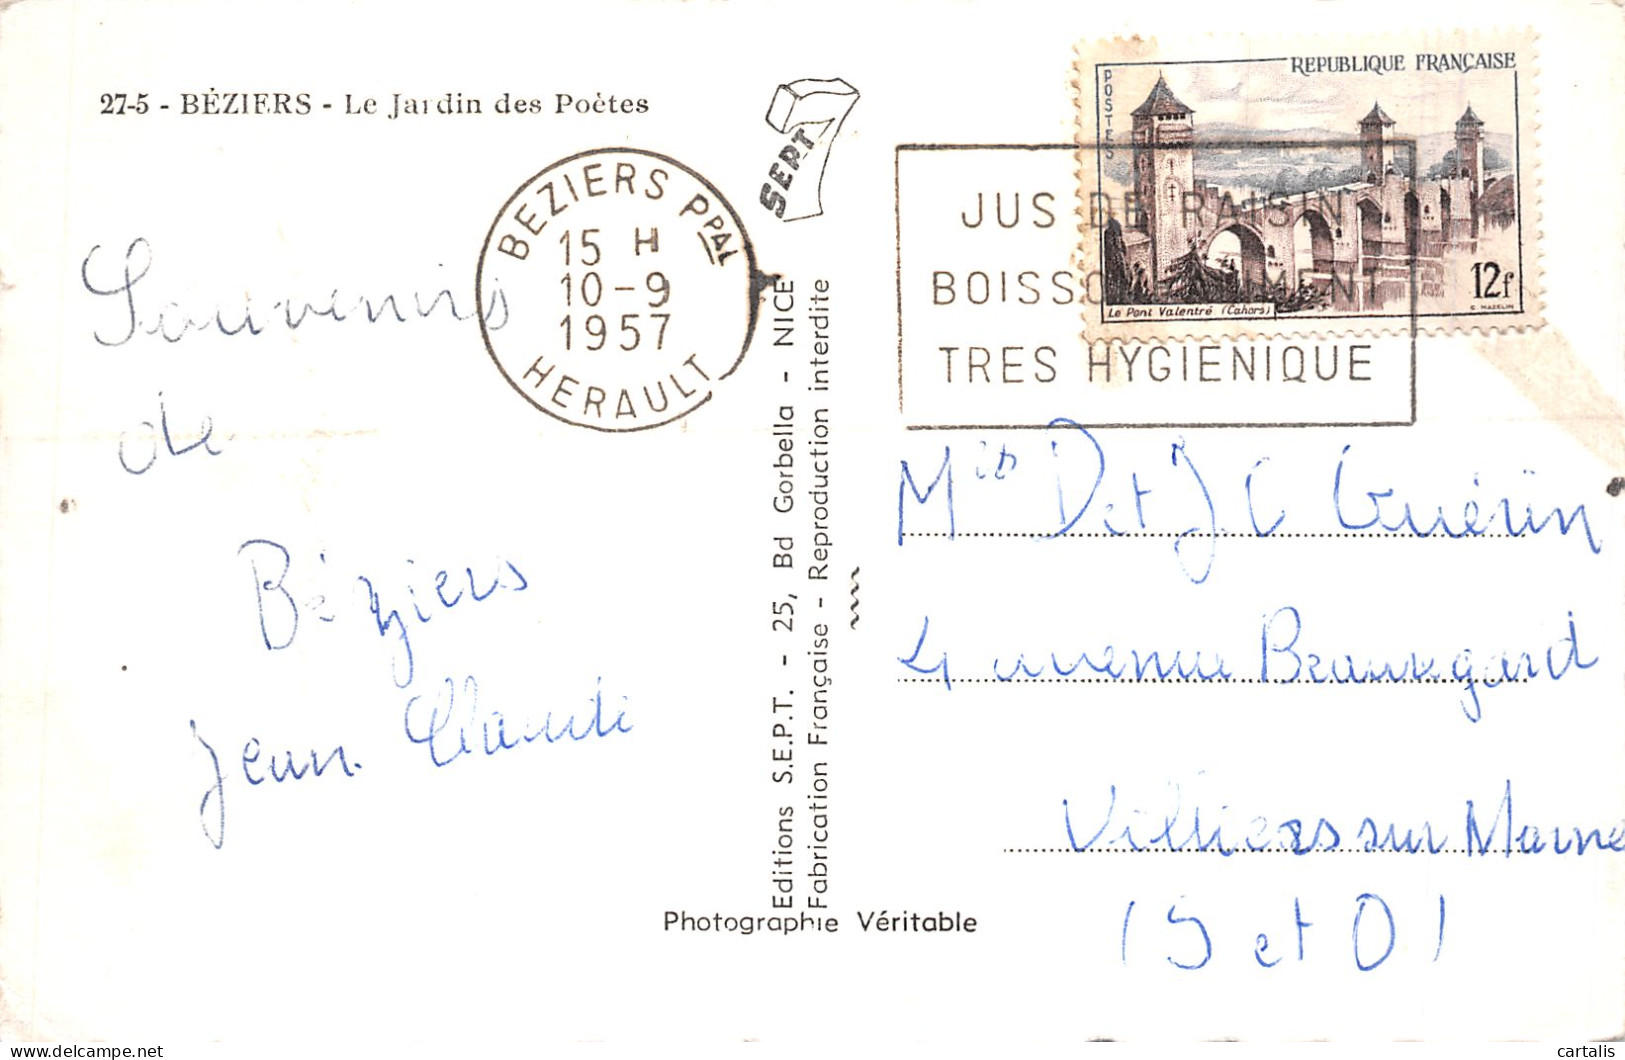 27-5 - BÉZIERS - Le Jardin des Poètes
SEPT 7
BEZIERS PPAL
15 H
10-9
1957
HERAULT
REPUBLIQUE FRANÇAISE
POSTES
12f
Le Pont Valentré (Cahors)
C. MAZELIN
JUS DE RAISIN
BOISSON
TRES HYGIENIQUE
Souvenirs
de
Béziers
Jean Claude
Editions S.E.P.T. - 25, Bd Gorbella - NICE
Fabrication Française - Reproduction interdite
Photographie Véritable
D et J C Guérin
4 avenue Beauregard
Villiers sur Marne
(S et O)
cartalis
delcampe.net